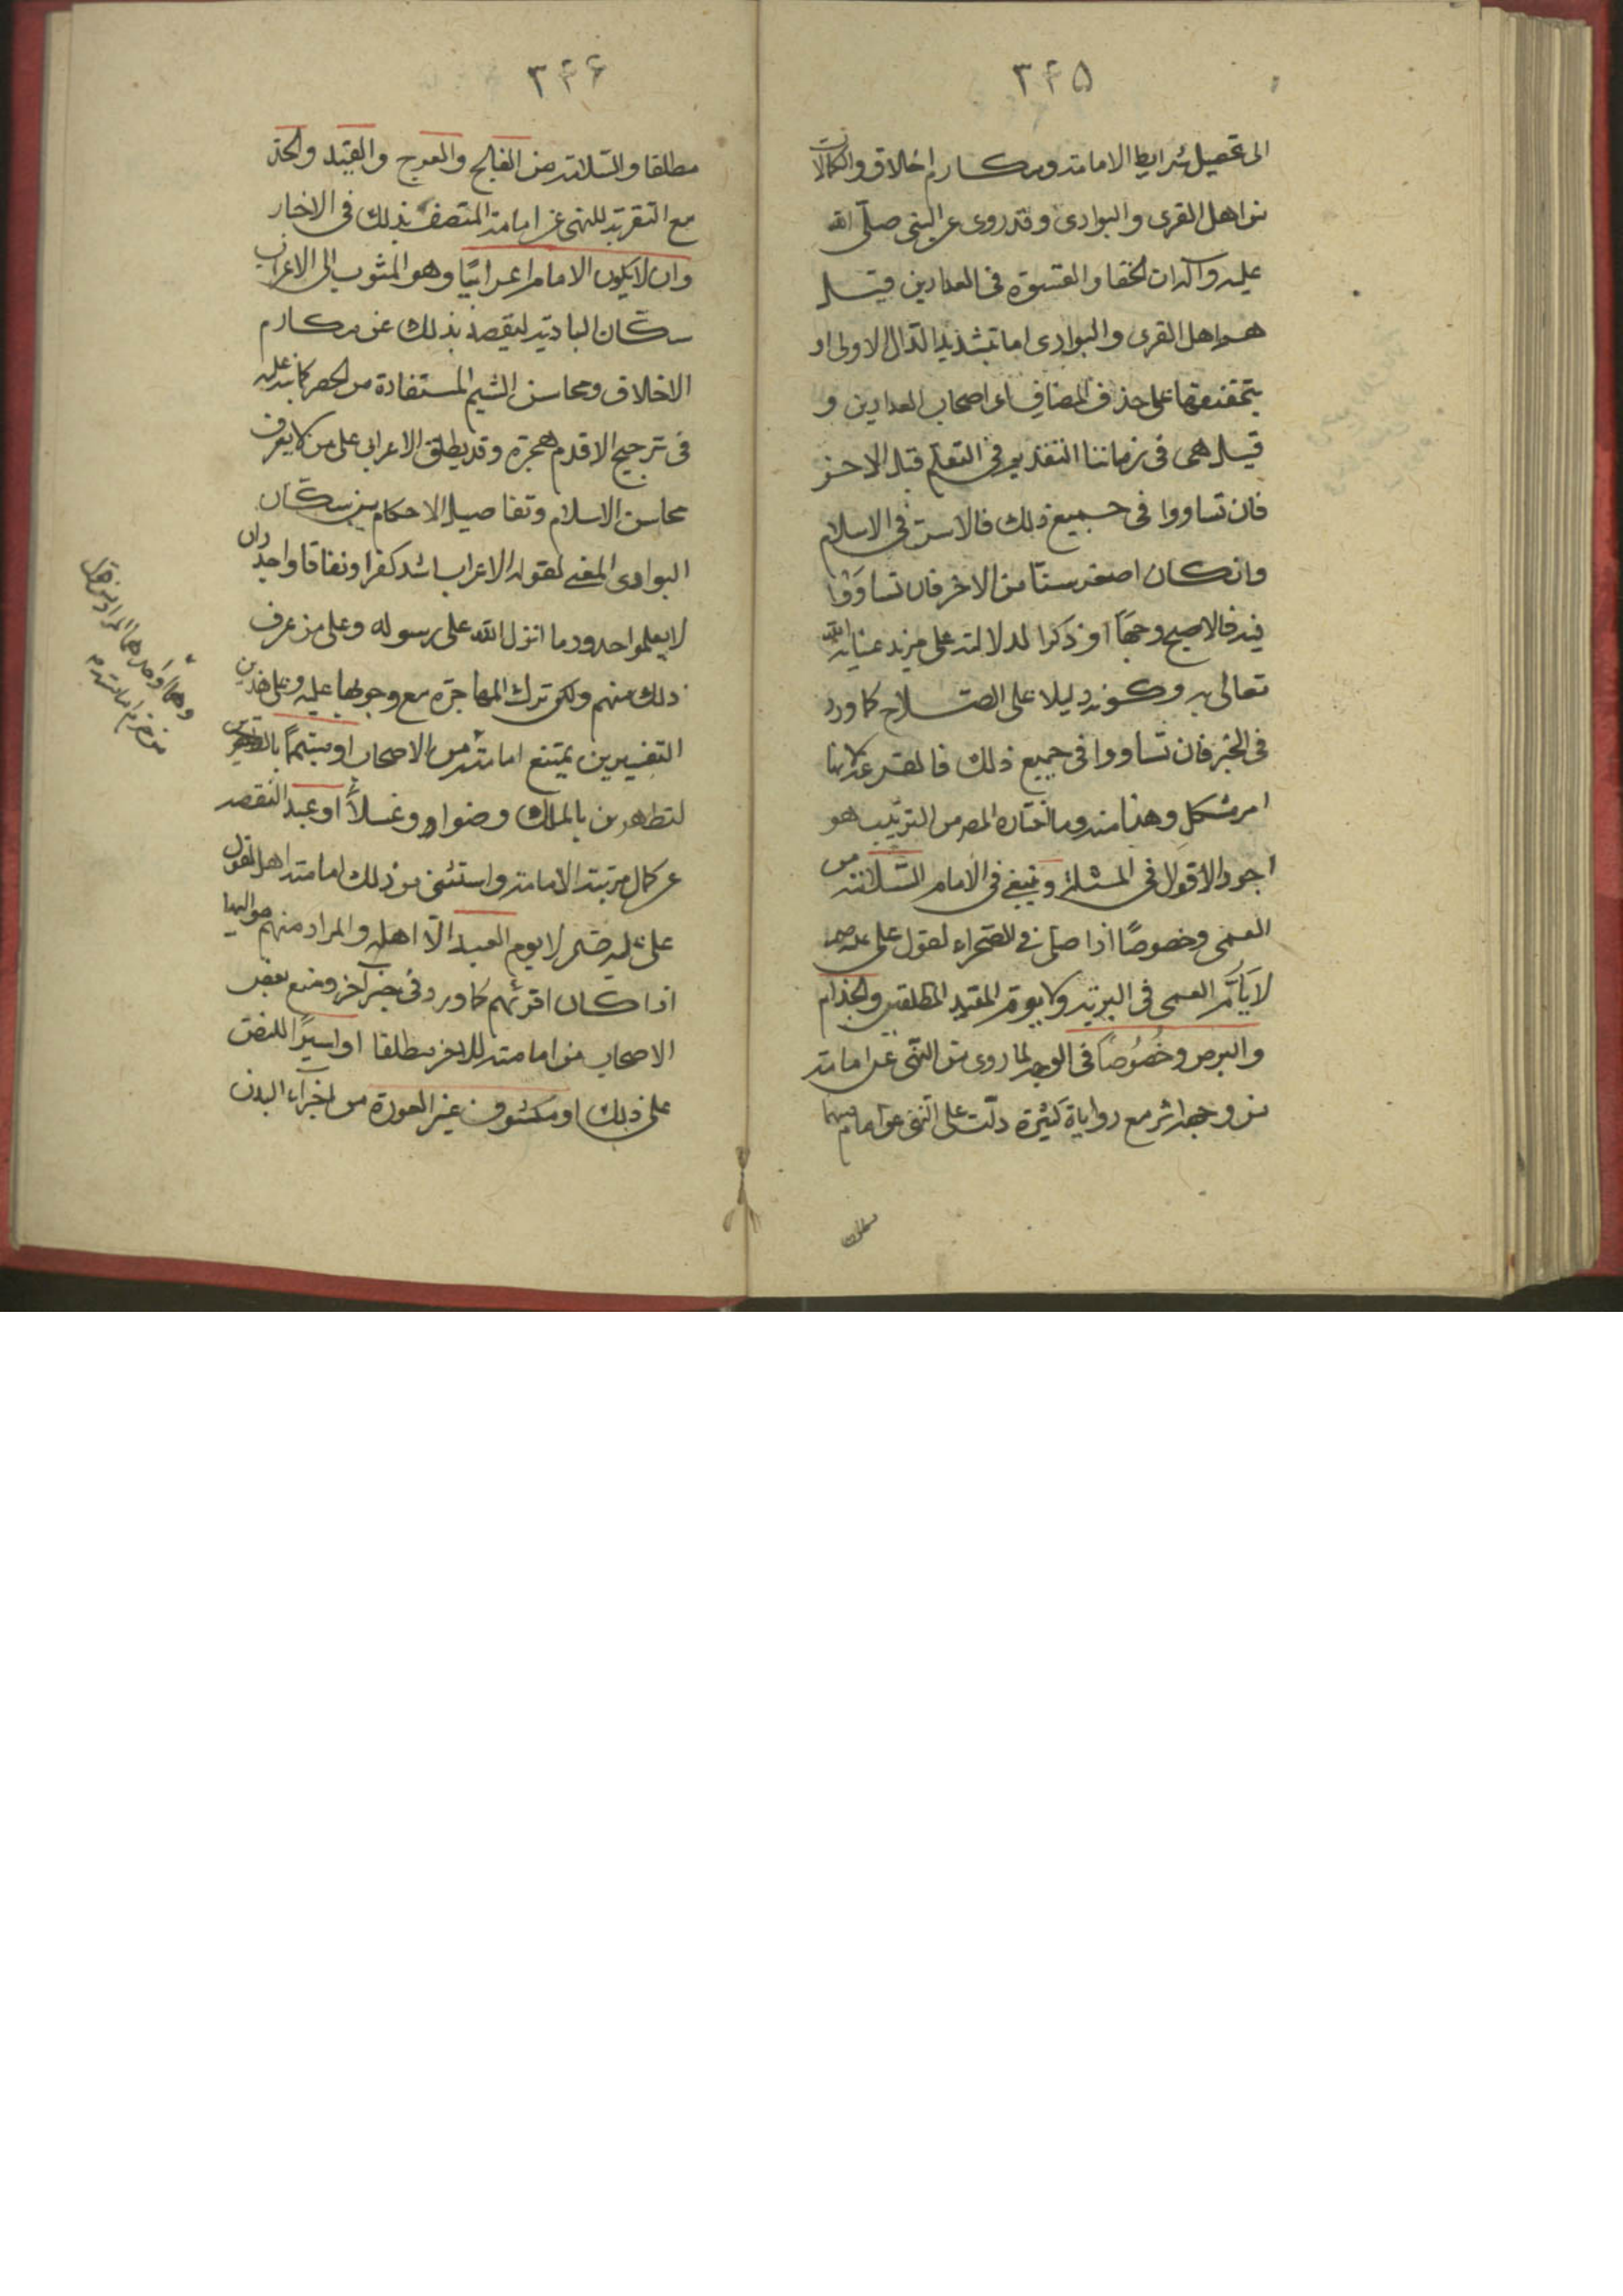 ۳۴۵
الى تحصيل شرايط الامامة ومكارم اخلاق والكمالات
من اهل القرى والبوادى وقد روى عن النبى صلّى الله
عليه وآله ان الجفا والقسوة فى الفدادين قيل
هم اهل القرى والبوادى اما بتشديد الدّال الاولى او
بتخفيفها على حذف المضاف اى اصحاب الفدادين و
قيل هى فى زماننا التقديم فى التعلّم قبل الاخر
فان تساووا فى جميع ذلك فالاسنّ فى الاسلام
وان كان اصغر سنّا من الاخر فان تساوَوْا
فيه فالاصبح وجهاً او ذكرا لدلالته على مزيد عناية الله
تعالى به وكونه دليلا على الصّلاح كما ورد
فى الخبر فان تساووا فى جميع ذلك فالقرعة لانها
امر مشكل وهذا منه وما اختاره المصر من الترتيب هو
اجود الاقوال فى المسئلة وينبغى فى الامام السّلامة من
العمى وخصوصًا اذا صلّى فى الصّحراء لقول على عليه
لا يَأُمّ العمى فى البريّة ولا يؤم المقيد المطلقين والجذام
والبرص وخُصُوصاً فى الوجه لما روى من النّهى عن امامة
من وجهه اثر مع رواية كثيرة دلّت على النهى عن امامتهما
مطلقا
۳۴۶
مطلقا والسّلامة من الفالج والعرج والقيد والحدّ
مع التقربة للنهى عن امامة المتصف بذلك فى الاخبار
وان لا يكون الامام اعرابيًا وهو المنسوب الى الاعراب
سكّان البادية لنقصه بذلك عن مكارم
الاخلاق ومحاسن الشيم المستفادة من الحضر كما نبه عليه
فى ترجيح الاقدم هجرة وقد يطلق الاعرابى على من لا يعرف
محاسن الاسلام وتفاصيل الاحكام من سكّان
البوادى المعنى لقوله الاعراب اشد كفرا ونفاقا واجدر ان
لا يعلموا حدود ما انزل الله على رسوله وعلى من عرف
ذلك منهم ولكن ترك المهاجرة مع وجوبها عليه وعلى هذين
التفسيرين يمتنع امامته من الاصحاب او متيمّماً بالمتطهرين
لتطهرهم بالماء وضوا او غسلاً او عبد النقصه
عن كمال مرتبة الامامة واستثنى من ذلك امامته اهل لقول
على عليه لا يوم العبد الّا اهله والمراد منهم مواليها
اذا كان اقرئهم كما ورد فى خبر آخر ومنع بعض
الاصحاب من امامته للاخر مطلقا او اسيرًا للنصّ
على ذلك او مكشوف غير العورة من اجزاء البدن